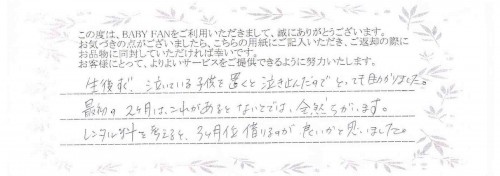 この度は、BABY FANをご利用いただきまして、誠にありがとうございます。
お気づきの点がございましたら、こちらの用紙にご記入いただき、ご返却の際に
お品物に同封していただければ幸いです。
お客様にとって、よりよいサービスをご提供できるように努力いたします。
生後すぐ、泣いている子供を置くと泣き止んだのでとっても助かりました。
最初の2ヶ月は、これがあるとないとでは、全然ちがいます。
レンタル料を考えると、3ヶ月位借りるのが良いかと思いました。